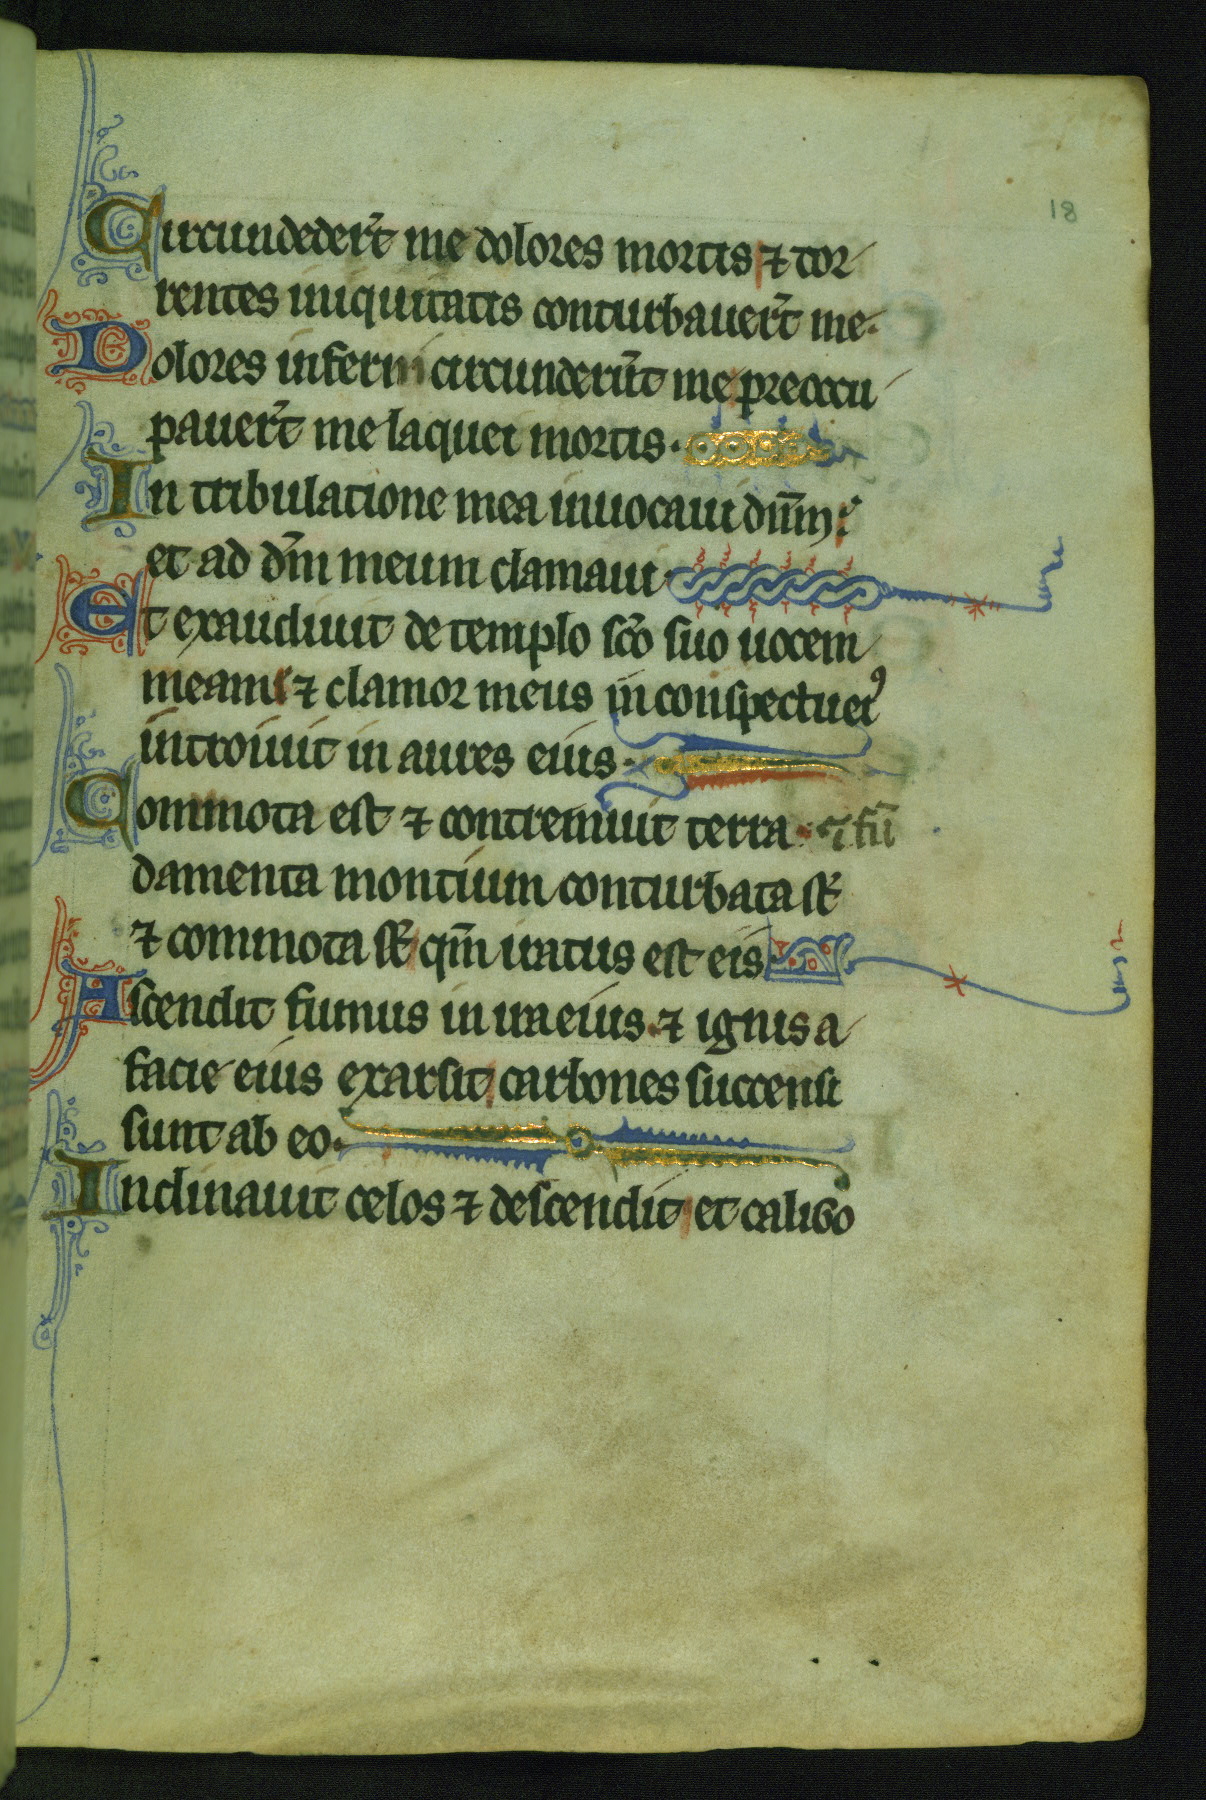 18
Circundeder̄t me dolores mortis ⁊ tor
rentes iniquitatis conturbauer̄t me.
Dolores inferni circunderūt me preoccu
pauer̄t me laquei mortis.
In tribulatione mea inuocaui dn̄m
et ad dm̄ meum clamaui
Et exaudiuit de templo sc̄o suo uocem
meam ⁊ clamor meus in conspectu eiꝰ
introiuit in aures eius.
Commota est ⁊ contremuit terra ⁊ fū
damenta montium conturbata st̄
⁊ commota st̄ qm̄ iratus est eis
Ascendit fumus in ira eius. ⁊ ignis a
facie eius exarsit carbones succensi
sunt ab eo.
Inclinauit celos ⁊ descendit et caligo